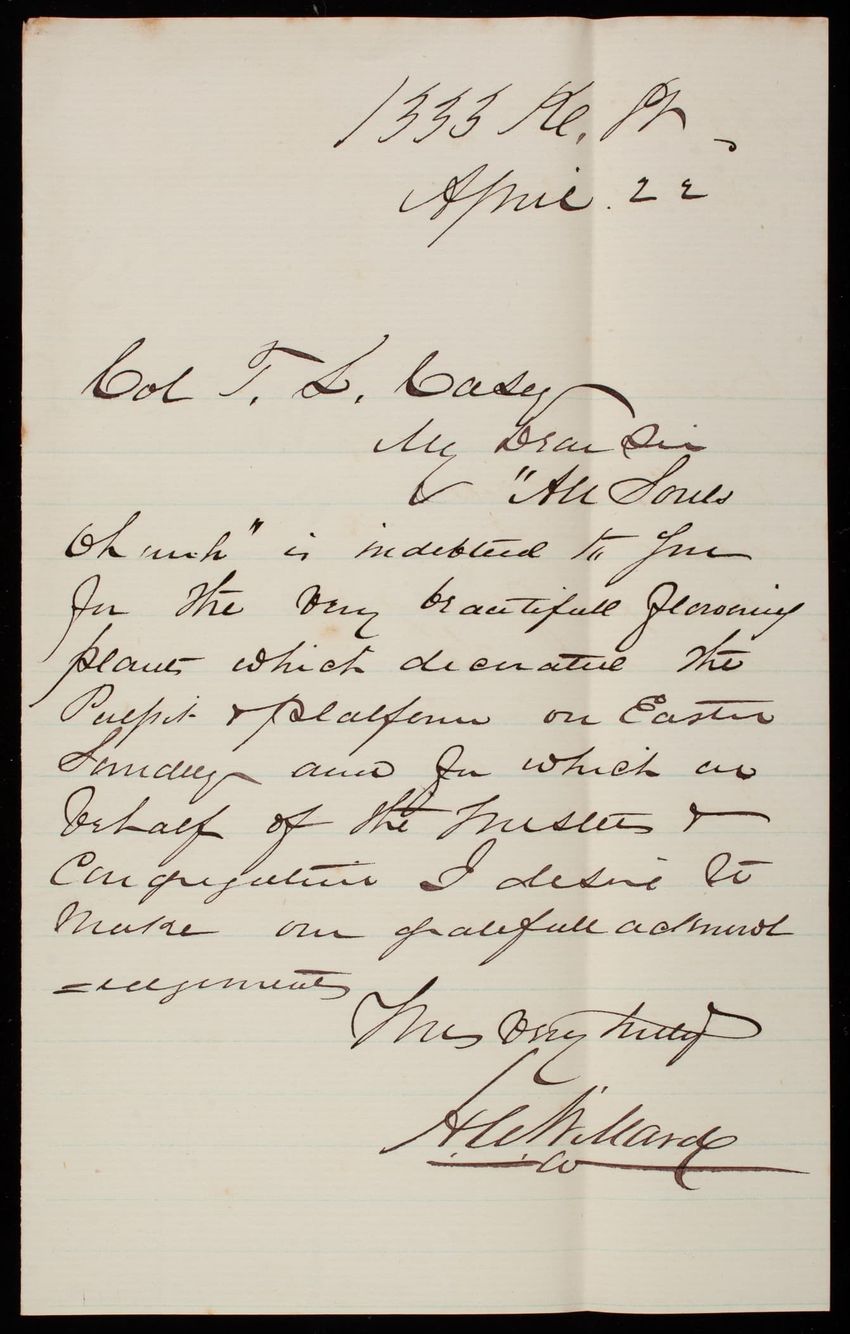 1333 K. St,
April 22
Col T. L. Casey
My Dear Sir
"All Souls
Church" is indebted to you
for the very beautifull flowering
plants which decorated the
Pulpit & platform on Easter
Sunday and for which on
behalf of the Trustees &
Congregation I desire to
make our gratefull acknowl
=edgements
Yours Very truly
Willard